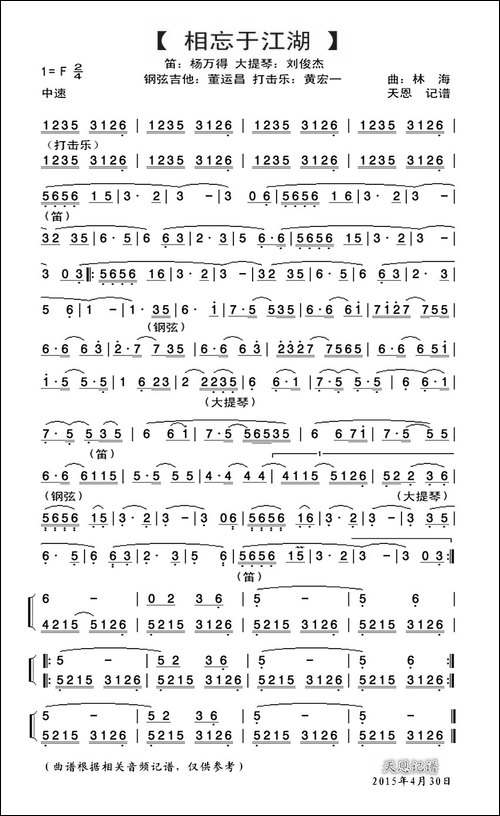 【 相忘于江湖 】
笛：杨万得 大提琴：刘俊杰
1=F 2/4
钢弦吉他：董运昌 打击乐：黄宏一 曲：林 海
中速 天恩 记谱
1235 3126 | 1235 3126 | 1235 3126 | 1235 3126 |
(打击乐)
1235 3126 | 1235 3126 | 1235 3126 | 1235 3126 |
5656 1 5 | 3 · 2 | 3 – | 3 0 6 | 5656 15 | 3 · 2 | 3 – |
(笛)
32 35 | 6 · 5 | 6 6 3 | 2 · 5 | 6 · 6 | 5656 15 | 3 · 2 | 3 – |
3 0 3 |: 5656 16 | 3 · 2 | 3 – | 32 35 | 6 · 5 | 6 63 | 2 · 5 |
5 6 | 1 – | 1 · 35 | 6 6 1 | 7 · 5 535 | 6 · 6 61 | 7127 755 |
(钢弦)
6 · 6 63 | 2 · 7 735 | 6 · 6 63 | 2327 7565 | 6 · 6 651 |
1 · 5 5 · 5 | 1 6 23 | 2 2235 | 6 6 1 | 7 · 5 5 · 5 | 6 6 · 1 |
(大提琴)
7 · 5 535 | 6 6 1 | 7 · 5 56535 | 6 671 | 7 · 5 55 |
(笛)
6 · 6 6115 | 5 · 5 55 | 4 · 4 44 | 4115 5126 | 52 2 3 6 |
(钢弦) (大提琴)
5656 15 | 3 · 2 | 3 – | 3 06 | 5656 15 | 3 · 2 | 3 – | 3 35 |
6 · 5 | 6 63 | 2 · 3 | 2 6 | 5656 15 | 3 · 2 | 3 – | 3 03 :|
(笛)
6 – | 0 2 3 6 | 5 – | 5 6 |
4215 3126 | 5215 3126 | 5215 3126 | 5215 3126 |
|: 5 – | 5 2 3 6 | 5 – | 5 – :|
|: 5215 3126 | 5215 3126 | 5215 3126 | 5215 3126 :|
5 – | 52 36 | 5 – | 5 – |
5215 3126 | 5215 3126 | 5215 3126 | 5215 3126 |
(曲谱根据相关音频记谱，仅供参考) 天恩记谱
2015年4月30日